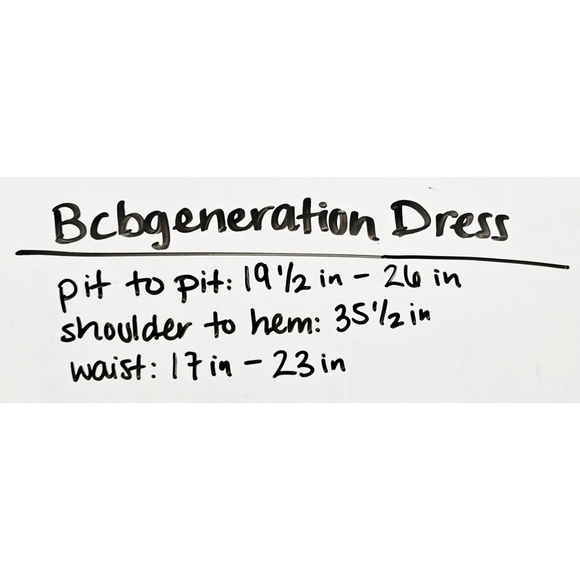 Bcbgeneration Dress
pit to pit: 19 1/2 in - 26 in
shoulder to hem: 35 1/2 in
waist: 17 in - 23 in